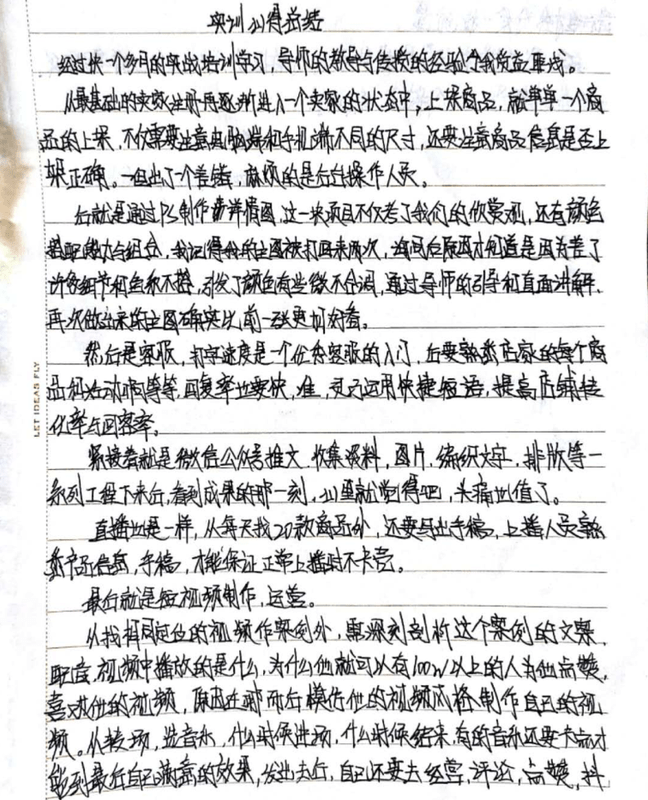 实训心得总结
经过快一个多月的实战培训学习,导师的教导与传授的经验令我受益匪浅。
从最基础的卖家注册再逐渐进入一个卖家的状态中,上架商品,就单单一个商
品的上架,不仅需要注意电脑端和手机端不同的尺寸,还要注意商品信息是否上
架正确。一但出了个差错,麻烦的是后台操作人员。
后就是通过PS制作 详情图,这一块项目不仅考了我们的欣赏观,还有颜色
搭配能力与组合,我记得我的主图被打回来两次,当问后原因才知道是因为差了
许多细节和色彩不搭,引发了颜色有些微不合调,通过导师的引导和直面讲解,
再次做出来的主图确实比前一张更加好看。
然后是客服,打字速度是一个优秀客服的入门,后要熟悉店家的每个商
品和活动 等等,回复率也要快,准,灵活运用快捷短语,提高店铺转
化率与回客率。
紧接着就是微信公众号推文,收集资料,图片,编织文字,排版等一
系列工程下来后,看到成果的那一刻,心里就觉得吧,头痛也值了。
直播也是一样,从每天找20款商品外,还要写出手稿,上播人员熟
悉产品信息,手稿,才能保证正常上播时不卡壳。
最后就是短视频制作,运营。
从找相同定位的视频作案例外,需深刻剖析这个案例的文案,
配音,视频中播放的是什么,为什么他就可以有100w以上的人为他点赞,
喜欢他的视频,原因在哪而后模仿他的视频风格制作自己的视
频。从转场,选音乐,什么时候进场,什么时候结束,有的音乐还要卡点才
能到最后自己满意的效果,发出去后,自己还要去经营,评论,点赞,抖
LET IDEAS FLY